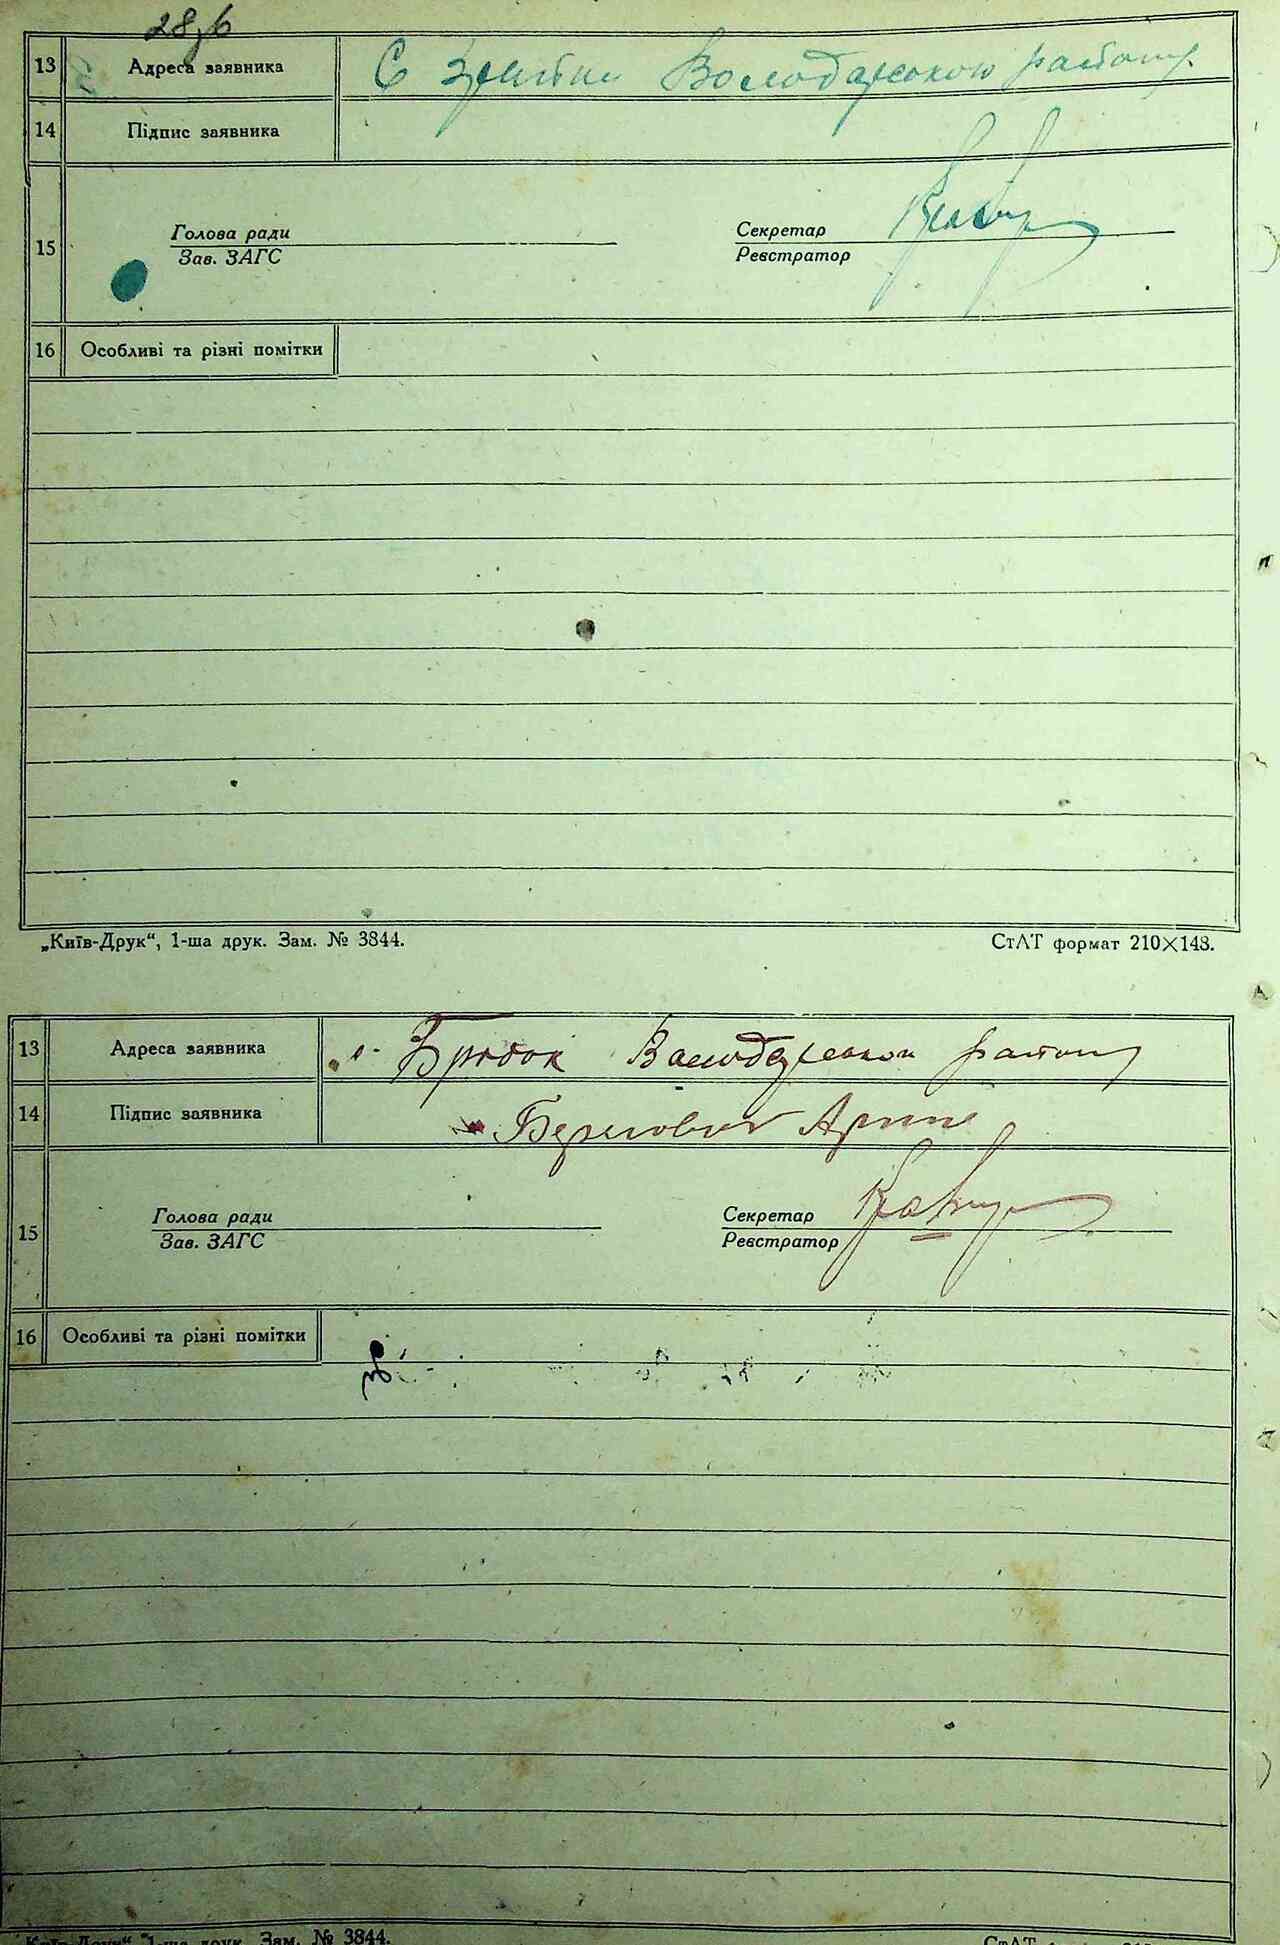 28зв
13 Адреса заявника С Володарського району
14 Підпис заявника
15 Голова ради Секретар
Зав. ЗАГС Реєстратор
16 Особливі та різні помітки
„Київ-Друк“, 1-ша друк. Зам. № 3844. СтАТ формат 210×148.
13 Адреса заявника с. Володарського району
14 Підпис заявника
15 Голова ради Секретар
Зав. ЗАГС Реєстратор
16 Особливі та різні помітки
Київ-Друк“ 1-ша друк. Зам. № 3844. СтАТ